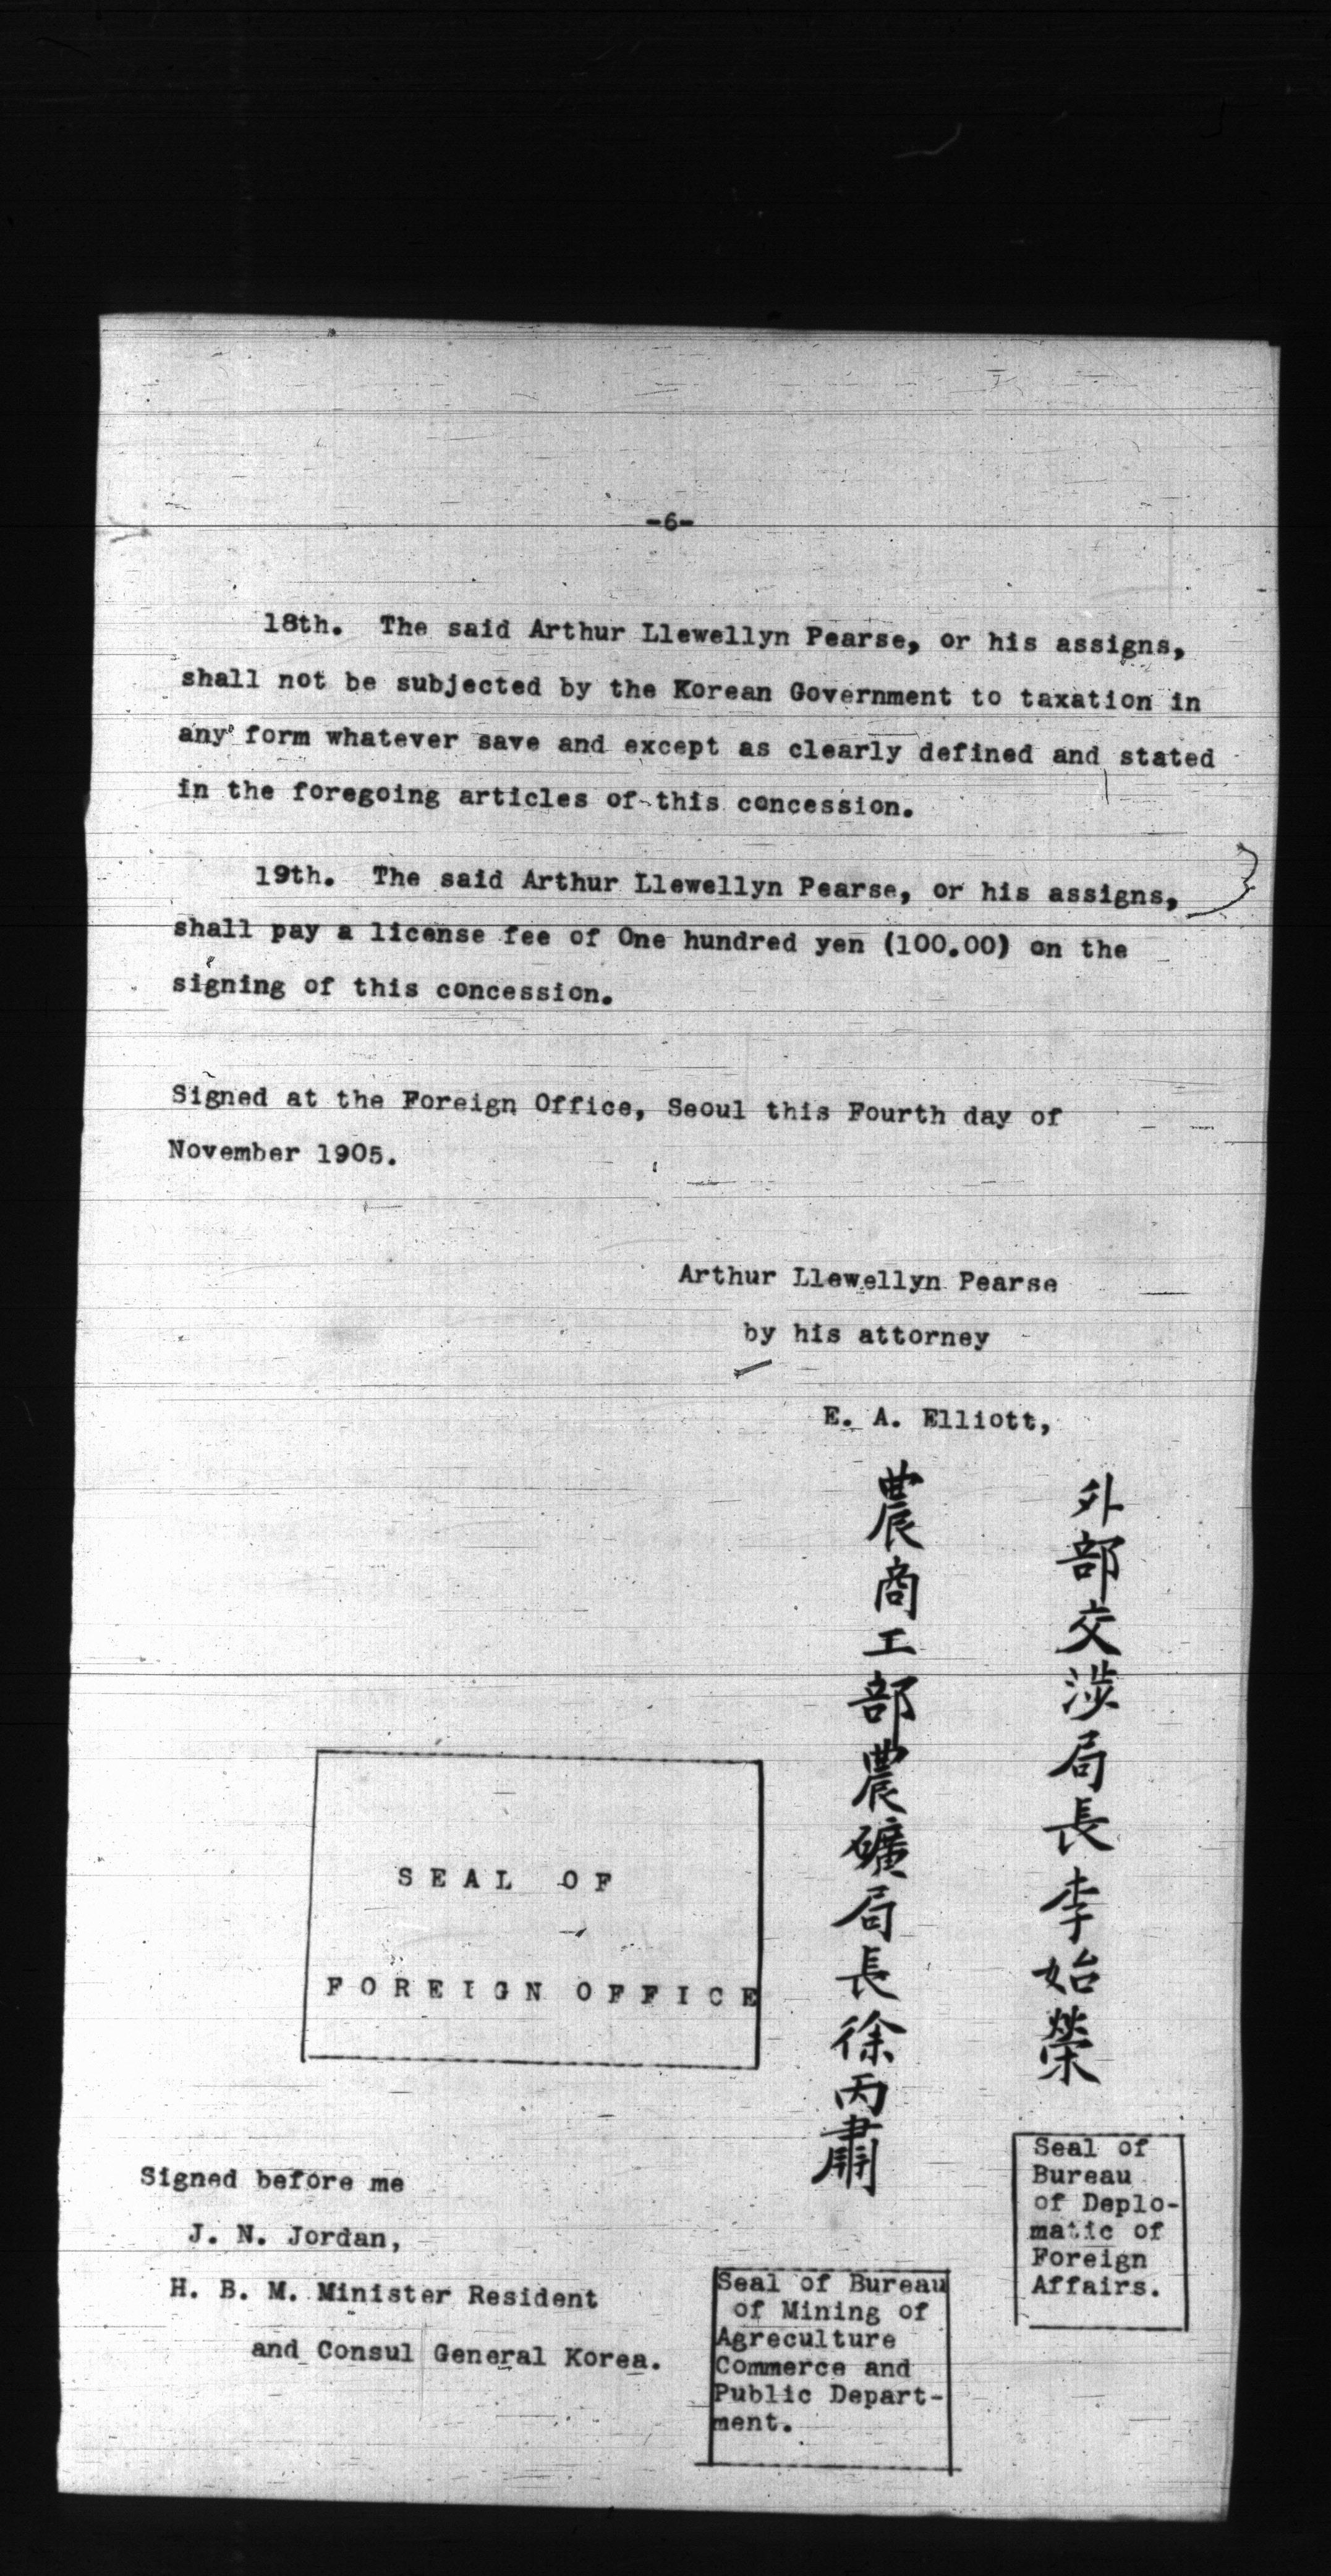 -6-
18th. The said Arthur Llewellyn Pearse, or his assigns,
shall not be subjected by the Korean Government to taxation in
any form whatever save and except as clearly defined and stated
in the foregoing articles of this concession.
19th. The said Arthur Llewellyn Pearse, or his assigns,
shall pay a license fee of One hundred yen (100.00) on the
signing of this concession.
Signed at the Foreign Office, Seoul this Fourth day of
November 1905.
Arthur Llewellyn Pearse
by his attorney
E. A. Elliott,
外部交涉局長李始榮
農商工部農礦局長徐丙肅
SEAL OF
FOREIGN OFFICE
Signed before me
J. N. Jordan,
H. B. M. Minister Resident
and Consul General Korea.
Seal of Bureau
of Mining of
Agreculture
Commerce and
Public Depart-
ment.
Seal of
Bureau
of Deplo-
matic of
Foreign
Affairs.